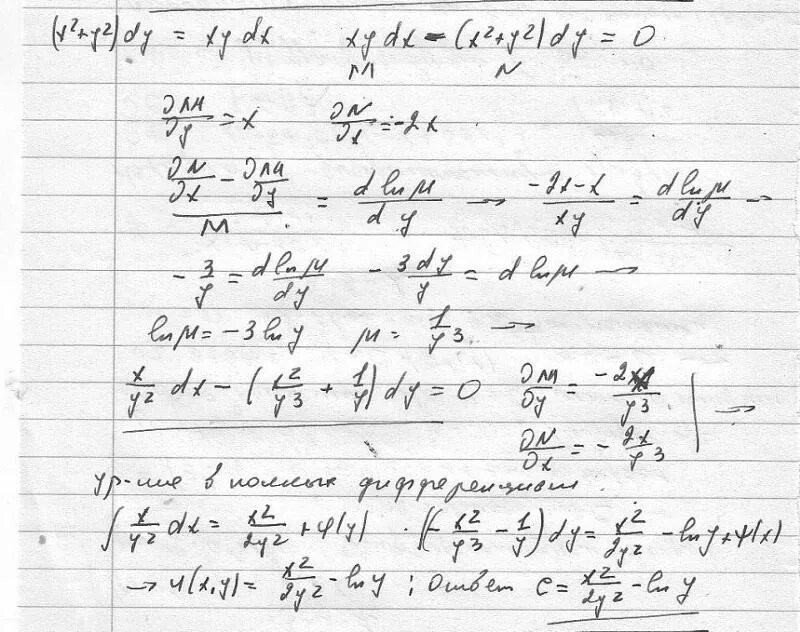 (x²+y²) dy = xy dx     xy dx - (x²+y²) dy = 0
M     N
∂M/∂y = x     ∂N/∂x = -2x
(∂N/∂x - ∂M/∂y)/M = d lnμ/dy → (-2x-x)/xy = d lnμ/dy →
-3/y = d lnμ/dy     -3dy/y = d lnμ →
lnμ = -3 ln y     μ = 1/y³ →
x/y² dx - (x²/y³ + 1/y) dy = 0     ∂M/∂y = -2x/y³
∂N/∂x = -2x/y³ →
ур-ние в полных дифференциалах.
∫ x/y² dx = x²/2y² + φ(y) · ∫(-x²/y³ - 1/y) dy = x²/2y² - ln y + ψ(x)
→ u(x,y) = x²/2y² - ln y ; ответ c = x²/2y² - ln y